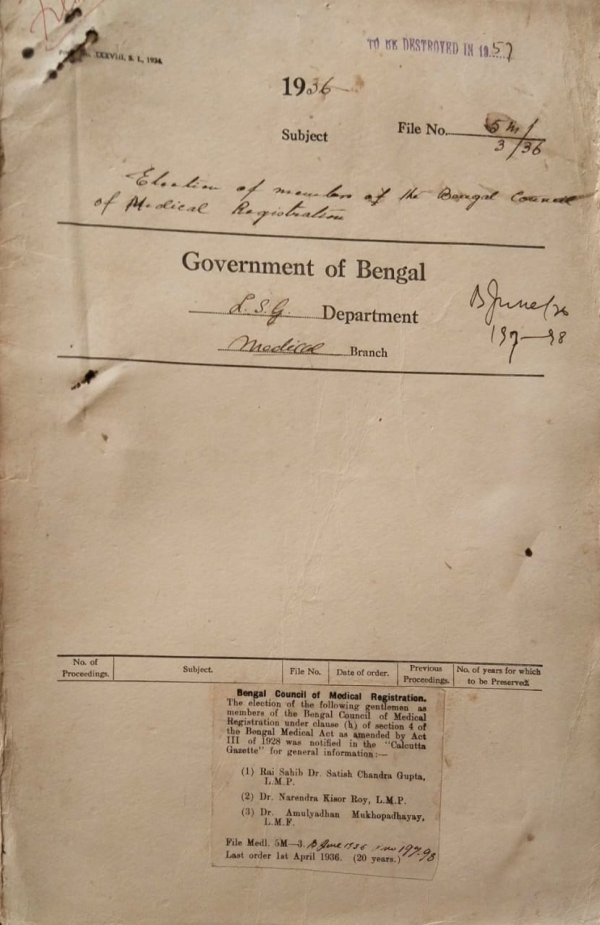 TO BE DESTROYED IN 1957
XXXVIII, S. I., 1934.
1936
Subject
File No. 5M/
3/36
Election of members of the Bengal Council
of Medical Registration
Government of Bengal
L.S.G. Department
B June/36
197-98
Medical Branch
No. of Proceedings. Subject. File No. Date of order. Previous Proceedings. No. of years for which to be Preserved.
Bengal Council of Medical Registration.
The election of the following gentlemen as
members of the Bengal Council of Medical
Registration under clause (h) of section 4 of
the Bengal Medical Act as amended by Act
III of 1928 was notified in the "Calcutta
Gazette" for general information:—
(1) Rai Sahib Dr. Satish Chandra Gupta,
L.M.P.
(2) Dr. Narendra Kisor Roy, L.M.P.
(3) Dr. Amulyadhan Mukhopadhayay,
L.M.F.
File Medl. 5M—3. B June 1936 nos 197-98
Last order 1st April 1936. (20 years.)